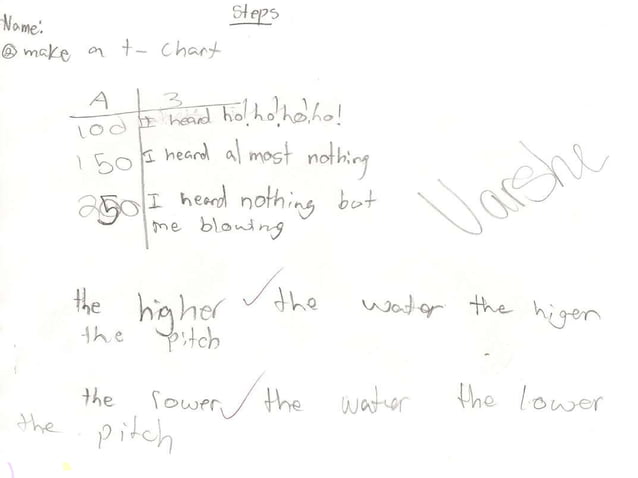 Steps
Name:
② make a t- chart
A 3
100 I heard ho! ho! ho! ho!
150 I heard almost nothing
250 I heard nothing but
me blowing
Varshe
the higher ✓ the water the higer
the pitch
the lower ✓ the water the lower
the pitch